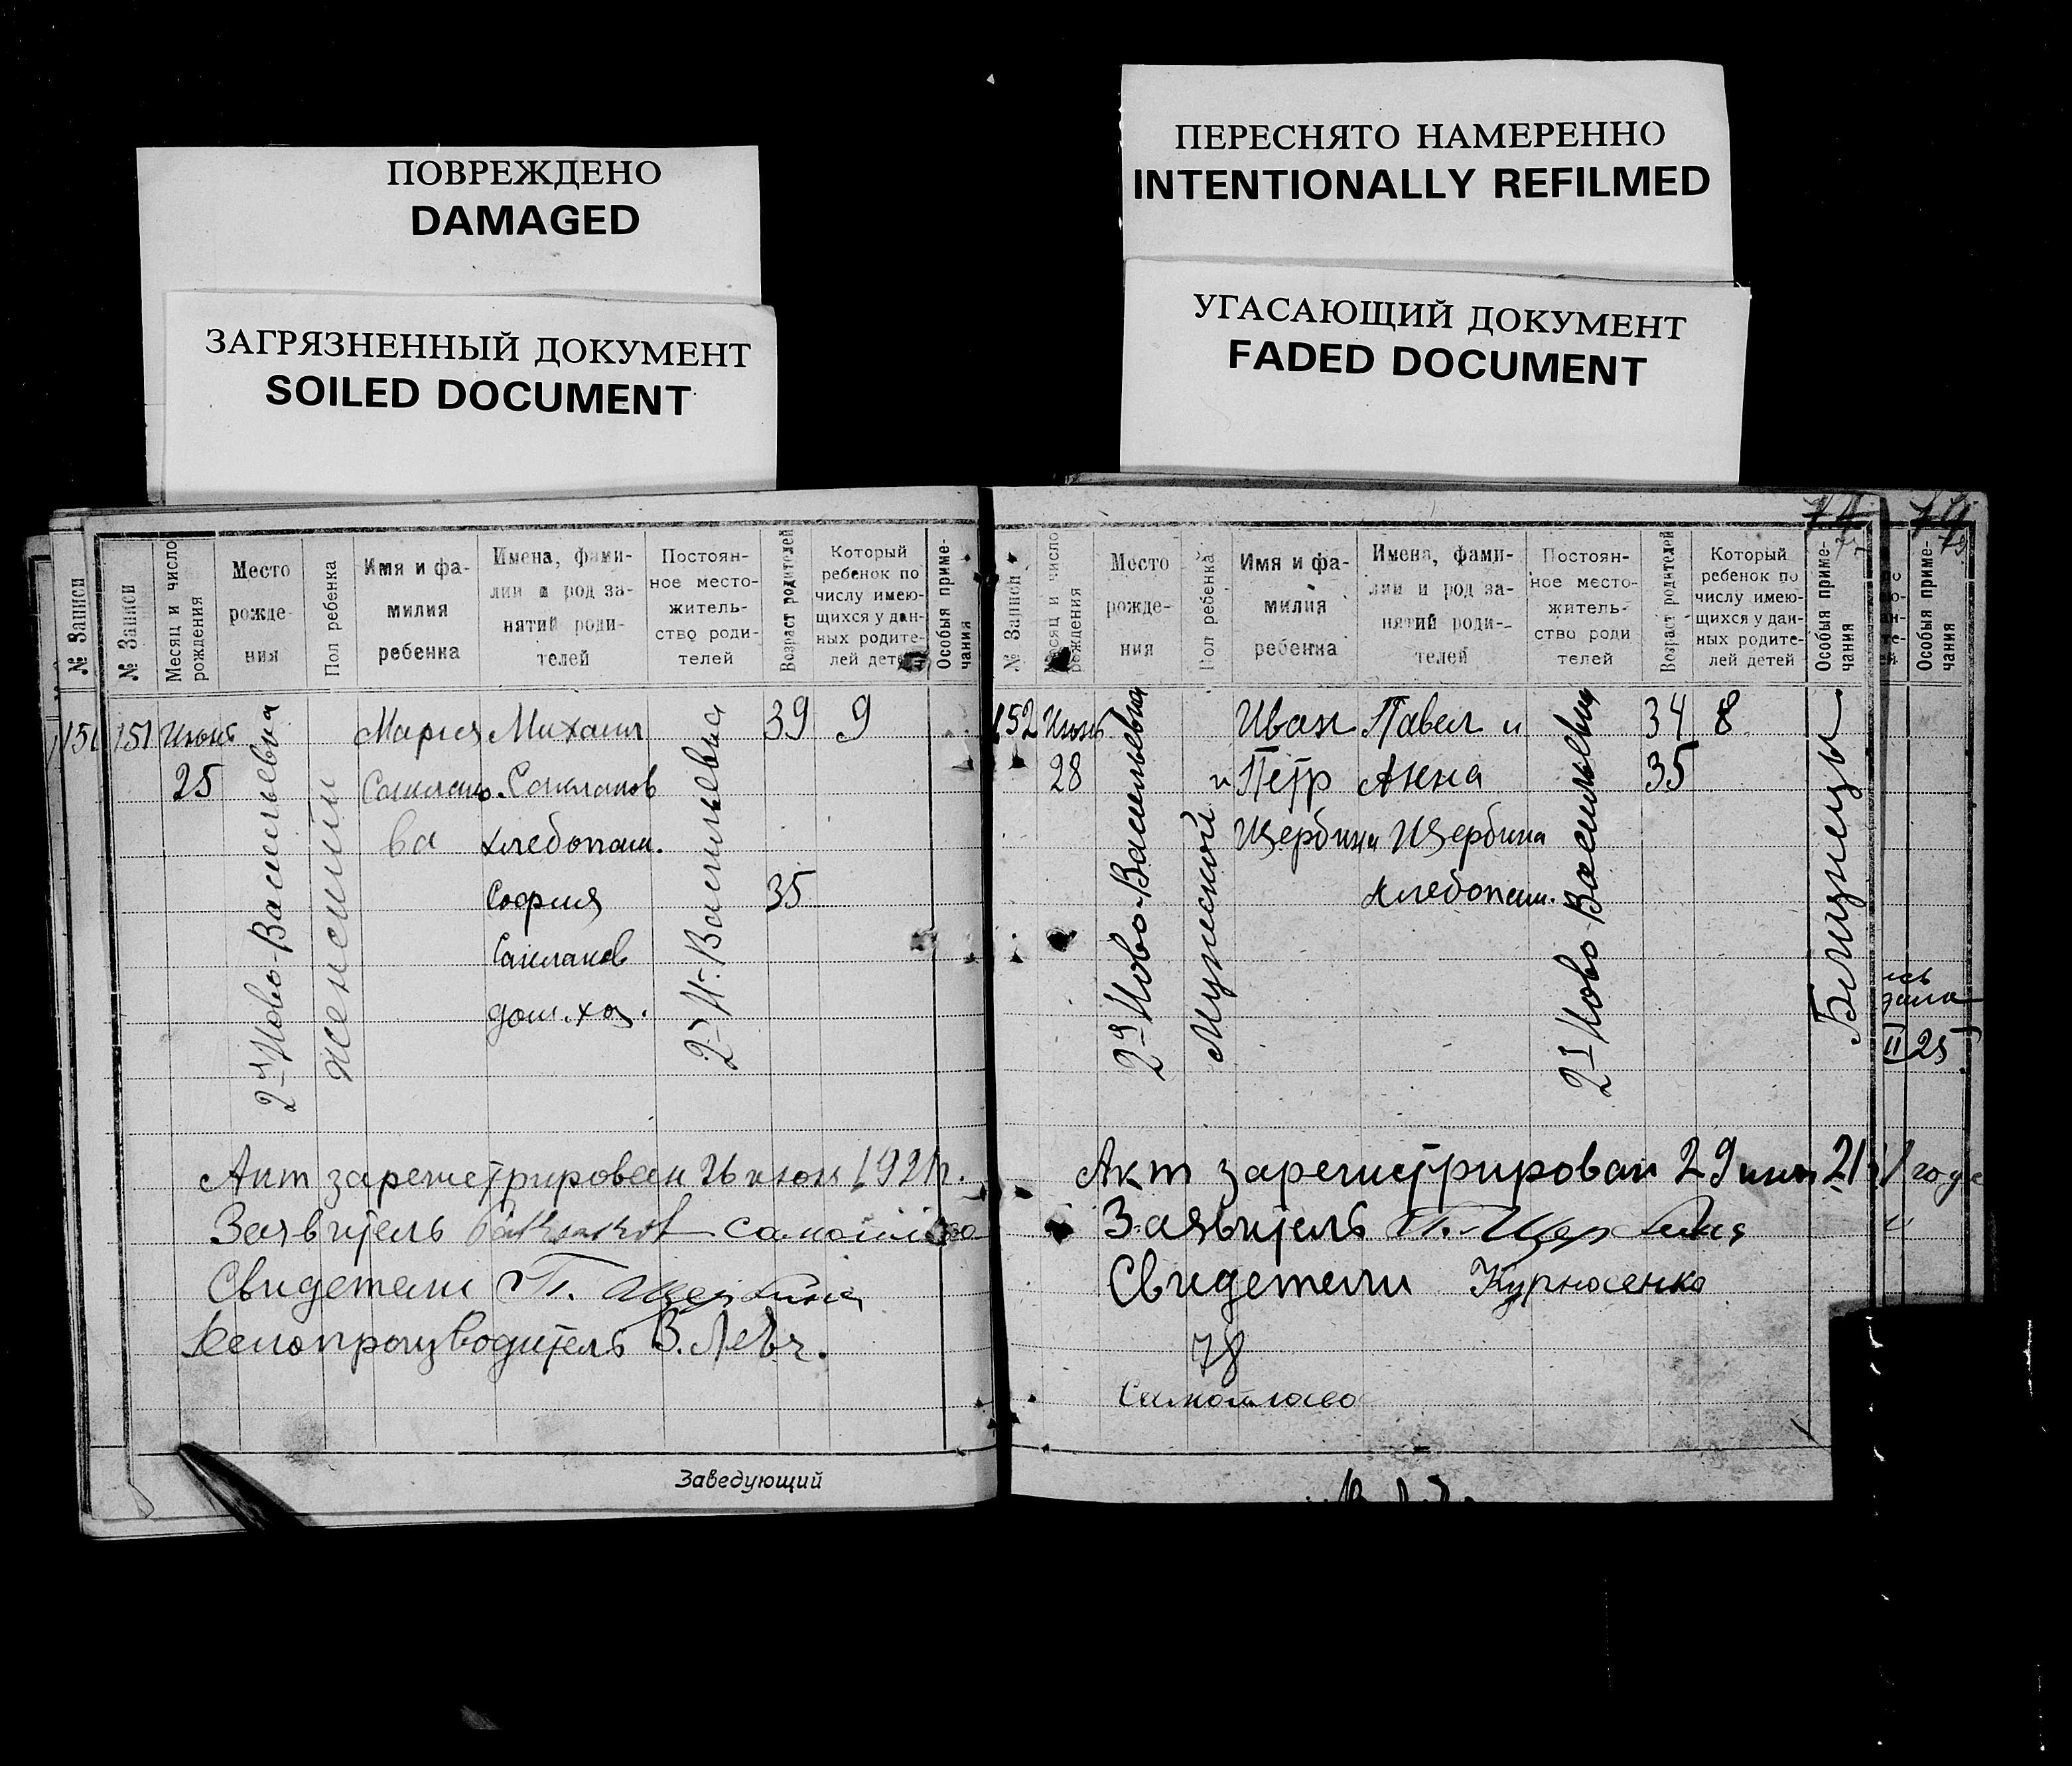 ПОВРЕЖДЕНО
DAMAGED
ЗАГРЯЗНЕННЫЙ ДОКУМЕНТ
SOILED DOCUMENT
ПЕРЕСНЯТО НАМЕРЕННО
INTENTIONALLY REFILMED
УГАСАЮЩИЙ ДОКУМЕНТ
FADED DOCUMENT
№ Записи
№ Записи
Месяц и число
рождения
Место
рожде-
ния
Пол ребенка
Имя и фа-
милия
ребенка
Имена, фами-
лии и род за-
нятий роди-
телей
Постоян-
ное место-
житель-
ство роди-
телей
Возраст родителей
Который
ребенок по
числу имею-
щихся у дан-
ных родите-
лей детей
Особыя приме-
чания
151
Июнь
25
2-я Ново-Васильевка
женский
Мария
ва
Михаил
хлебопаш.
София
дом. хоз.
2-я Н-Васильевка
39
35
9
Акт зарегистрирован 26 июня 1921 г.
Заявитель
Свидетели П. Щербина
Делопроизводитель В.
Заведующий
№ Записи
Месяц и число
рождения
Место
рожде-
ния
Пол ребенка
Имя и фа-
милия
ребенка
Имена, фами-
лии и род за-
нятий роди-
телей
Постоян-
ное место-
житель-
ство роди
телей
Возраст родителей
Который
ребенок по
числу имею-
щихся у дан-
ных родите-
лей детей
Особыя приме-
чания
152
Июнь
28
2-я Ново-Васильевка
Мужеский
Иван
и Петр
Щербина
Павел и
Анна
Щербина
хлебопаш.
2-я Ново-Васильевка
34
35
8
Близнецы
Акт зарегистрирован 29 июня 21
Заявитель П. Щербина
Свидетели Курносенко
78
Особыя приме-
чания
II 25
годе